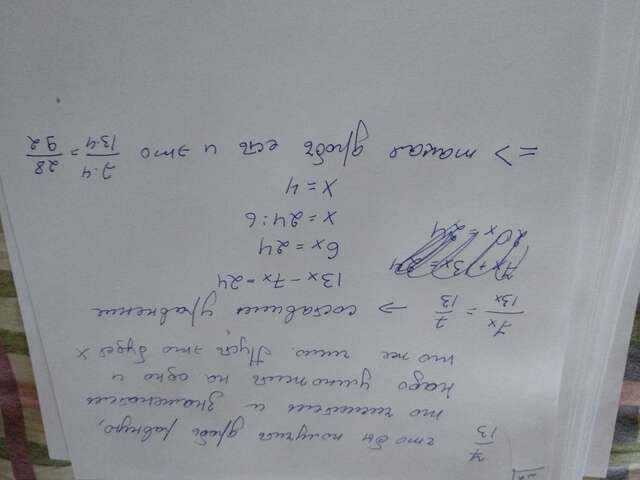 7/13 что бы получить дробь равную,
то числитель и знаменатель
надо умножить на одно и
то же число. Пусть это будет x
7x/13x = 7/13 → составим уравнение
13x - 7x = 24
6x = 24
x = 24 : 6
x = 4
=> такая дробь есть и это 7·4/13·4 = 28/92